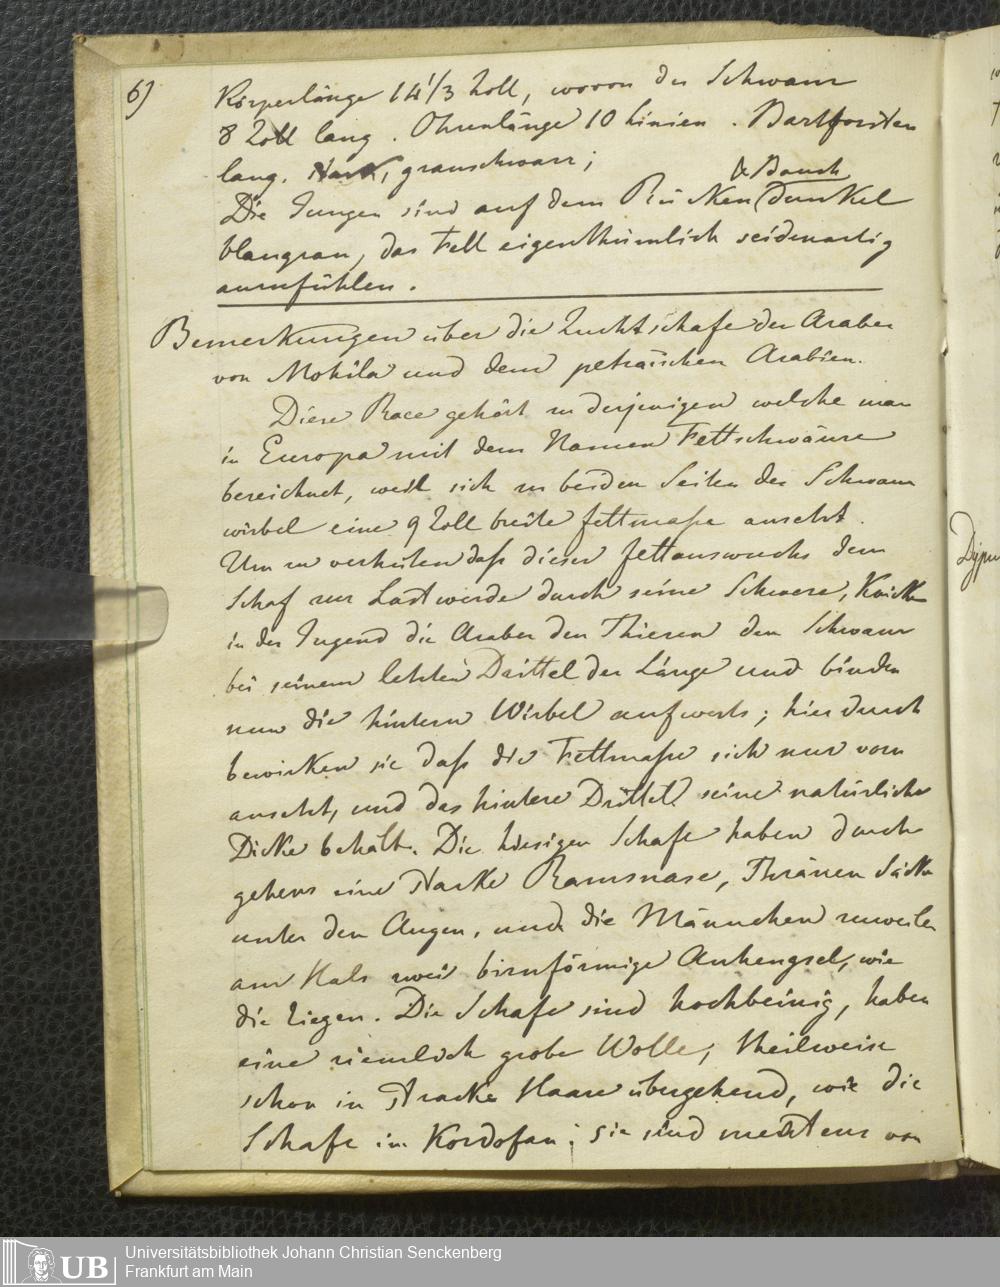 6)
Körperlänge 14 1/3 Zoll, wovon der Schwanz
8 Zoll lang. Ohrenlänge 10 Linien. Bartborsten
lang, stark, grauschwarz;
& Bauch
Die Jungen sind auf dem Rücken dunkel
blaugrau, das Fell eigenthümlich seidenartig
anzufühlen.
Bemerkungen über die Zuchtschafe der Araber
von Mohila und dem petraischen Arabien.
Diese Race gehört zu derjenigen welche man
in Europa mit dem Namen Fettschwänze
bezeichnet, weil sich zu beiden Seiten der Schwanz
wirbel eine 9 Zoll breite fettmaße ansetzt.
Um zu verhüten daß dieser fettauswuchs dem
Schaf zur Last werde durch seine Schwere, Knicken
in der Jugend die Araber den Thieren den Schwanz
bei seinem letzten Drittel der Länge und binden
nun die hintern Wirbel aufwerts; hierdurch
bewirken sie daß die Fettmaße sich nur vorn
ansetzt, und das hintere Drittel seine natürliche
Dicke behält. Die hiesigen Schafe haben durch
gehens eine starke Ramsnase, Thränen Säcke
unter den Augen, und die Männchen zuweilen
am Hals zwei birnförmige Anhengsel, wie
die Ziegen. Die Schafe sind hochbeinig, haben
eine ziemlich grobe Wolle, theilweise
schon in starke Haare übergehend, wie die
Schafe in Kordofan; sie sind meistens von
Universitätsbibliothek Johann Christian Senckenberg
Frankfurt am Main
UB